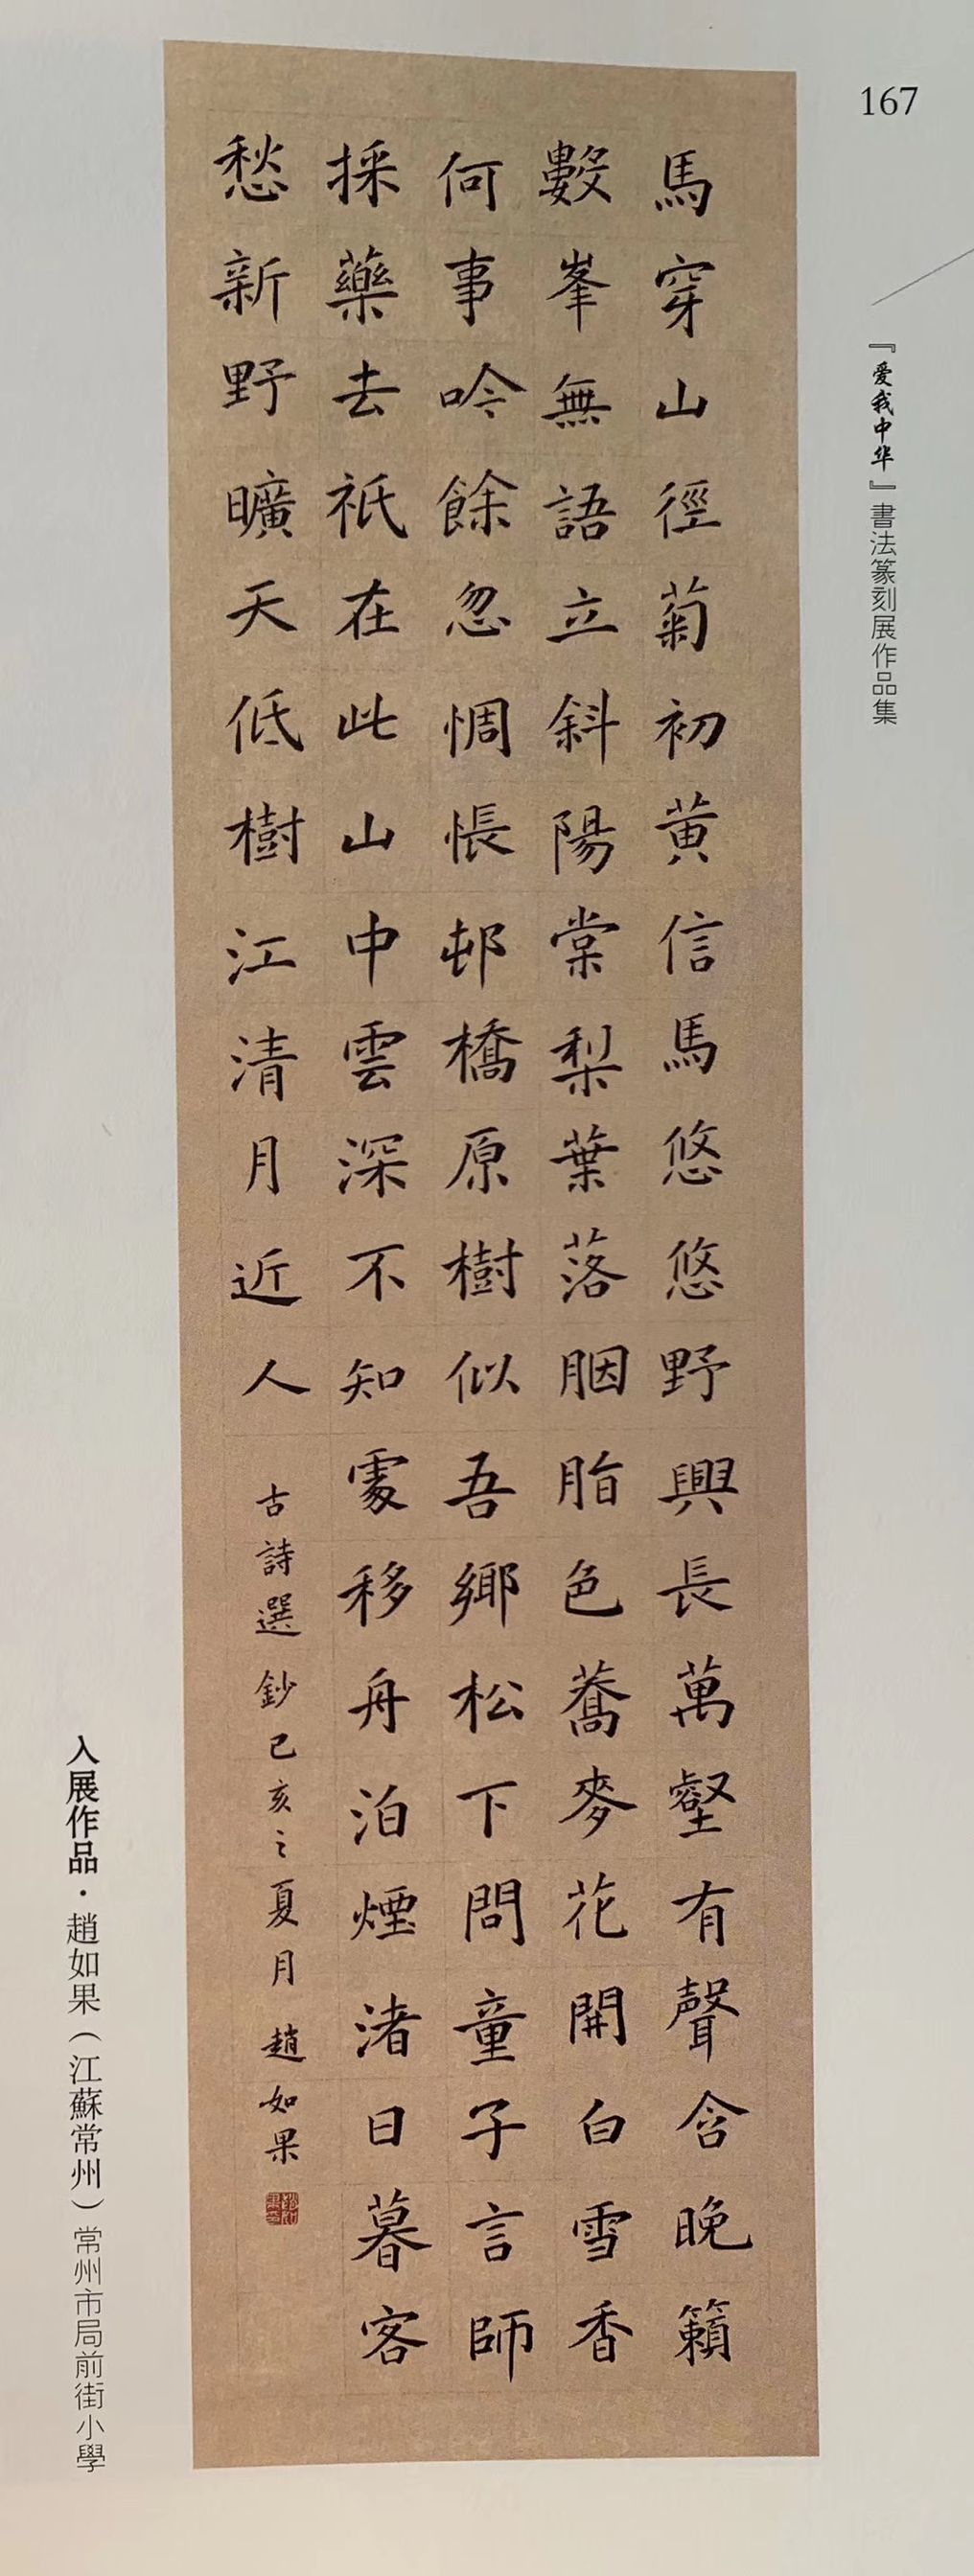 167
『爱我中华』書法篆刻展作品集
馬穿山徑菊初黄信馬悠悠野興長萬壑有聲含晚籟
數峯無語立斜陽棠梨葉落胭脂色蕎麥花開白雪香
何事吟餘忽惆悵邨橋原樹似吾鄉松下問童子言師
採藥去衹在此山中雲深不知處移舟泊煙渚日暮客
愁新野曠天低樹江清月近人
古詩選鈔己亥之夏月趙如果
入展作品·趙如果（江蘇常州）常州市局前街小學